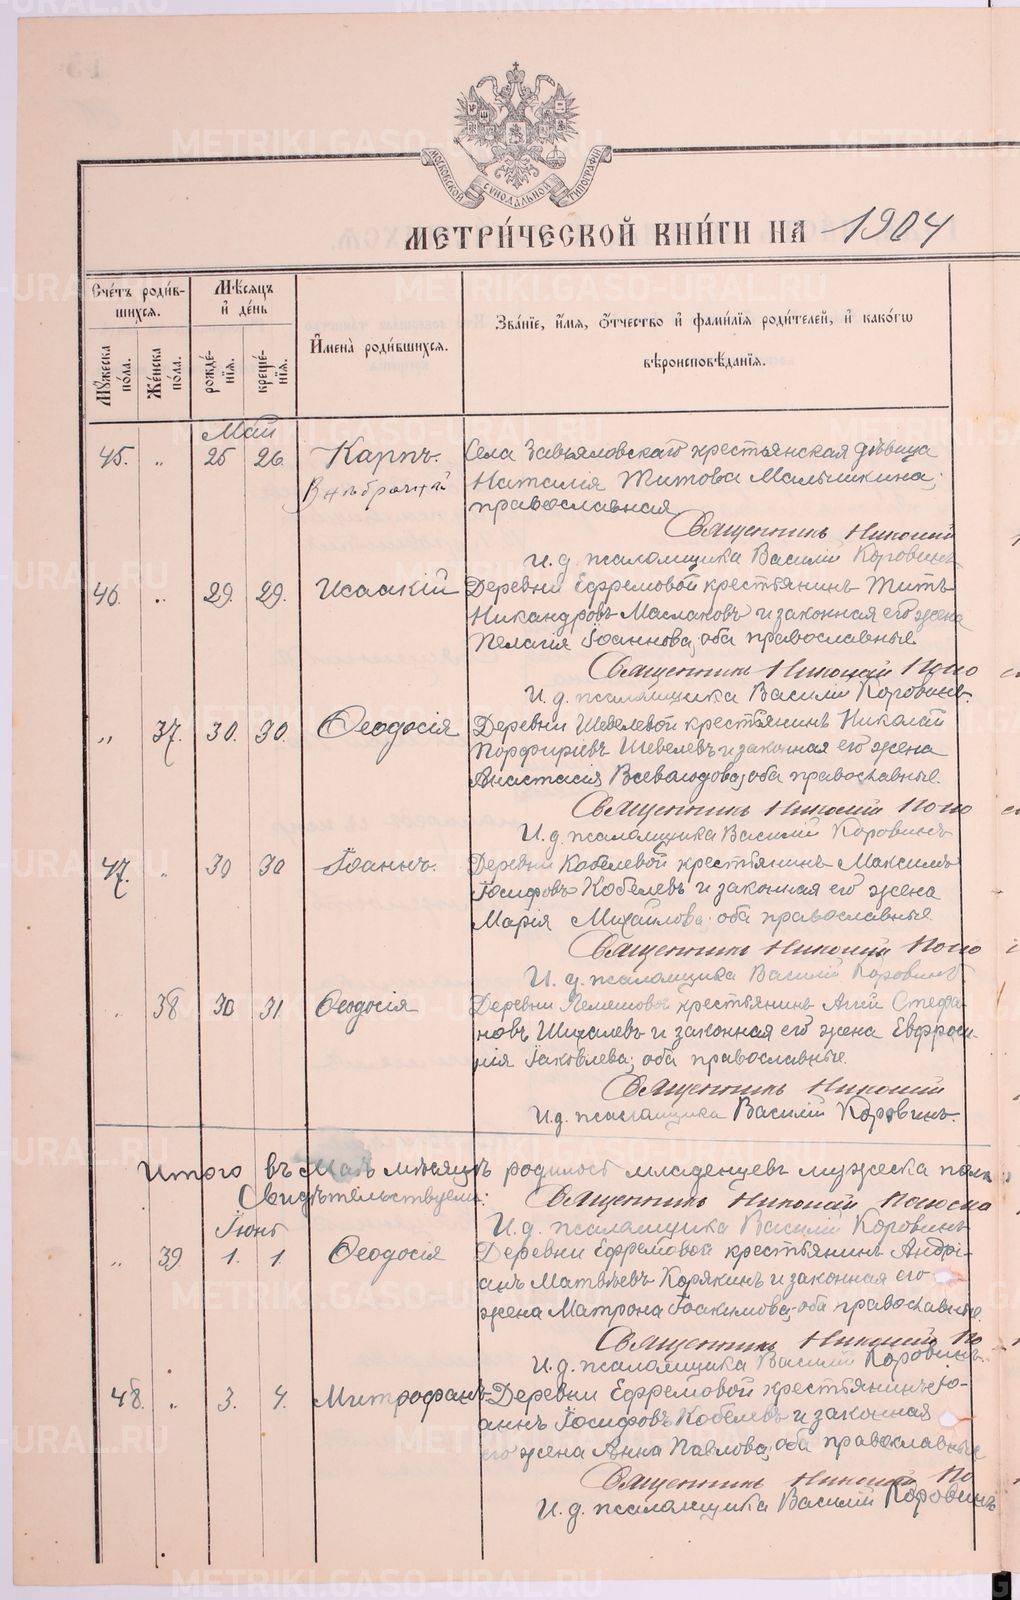 МОСКОВСКОЙ СѴНОДАЛЬНОЙ ТИПОГРАФІИ
МЕТРИ́ЧЕСКОЙ КНИ́ГИ НА 1904
Сче́тъ роди́вшихся.
Мѣ́сяцъ и҆ де́нь
И҆мена̀ роди́вшихся.
Зва́нїе, и҆́мя, ѻ҆́тчество и҆ фами́лїя роди́телей, и҆ како́гѡ
вѣроисповѣ́данїя.
Мꙋ́жеска по́ла.
Же́нска по́ла.
рожде́нїя.
креще́нїя.
Май
45. „ 25 26. Карпъ. Села Завьяловскаго крестьянская дѣвица
Внѣбрачный Наталія Титова Мальшикина;
православная
Священникъ Николай
И. д. псаломщика Василій Коровинъ
46. „ 29. 29. Исаакій Деревни Ефремовой крестьянинъ Титъ
Никандровъ Маслаковъ и законная его жена
Пелагія Іоаннова, оба православные
Священникъ Николай Попо
И. д. псаломщика Василій Коровинъ.
„ 37. 30. 30. Ѳеодосія Деревни Шевелевой крестьянинъ Николай
Порфиріевъ Шевелевъ и законная его жена
Анастасія Всеволодова; оба православные.
Священникъ Николай Попо
И. д. псаломщика Василій Коровинъ
47. „ 30 30 Іоаннъ. Деревни Кобелевой крестьянинъ Максимъ
Іосифовъ Кобелевъ и законная его жена
Марія Михайлова; оба православные
Священникъ Николай Попо
И. д. псаломщика Василій Коровинъ
„ 38 30 31 Ѳеодосія Деревни крестьянинъ Стефа-
новъ и законная его жена Евфроси-
нія Іаковлева; оба православные.
Священникъ Николай
И. д. псаломщика Василій Коровинъ.
Итого въ Маѣ мѣсяцѣ родилось младенцевъ мужеска пола
Свидѣтельствуемъ: Священникъ Николай
Іюнь И. д. псаломщика Василій Коровинъ
„ 39 1. 1. Ѳеодосія Деревни Ефремовой крестьянинъ Андрі-
анъ Матвѣевъ Корякинъ и законная его
жена Матрона Іоакимова; оба православные.
Священникъ Николай По
И. д. псаломщика Василій Коровинъ.
48. „ 3. 4. Митрофанъ Деревни Ефремовой крестьянинъ Іо-
аннъ Іосифовъ Кобелевъ и законная
его жена Анна Павлова, оба православные
Священникъ Николай По
И. д. псаломщика Василій Коровинъ
METRIKI.GASO-URAL.RU